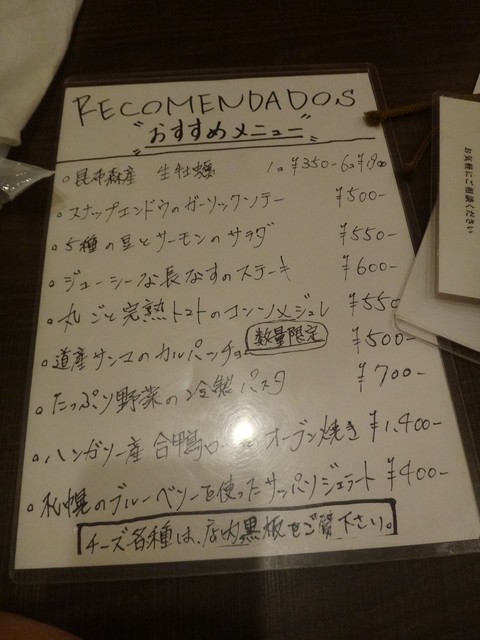 RECOMENDADOS
"おすすめメニュー"
。昆布森産 生牡蠣 1コ¥350- 6コ¥1,900
。スナップエンドウのガーリックソテー ¥500-
。5種の豆とサーモンのサラダ ¥550-
。ジューシーな長なすのステーキ ¥600-
。丸ごと完熟トマトのコンソメジュレ ¥550
。道産サンマのカルパッチョ 数量限定 ¥500-
。たっぷり野菜の冷製パスタ ¥700-
。ハンガリー産 合鴨ロースのオーブン焼き ¥1,400-
。札幌のブルーベリーを使ったサッパリジェラート ¥400-
チーズ各種は、店内黒板をご覧下さい。
お気軽にご相談ください